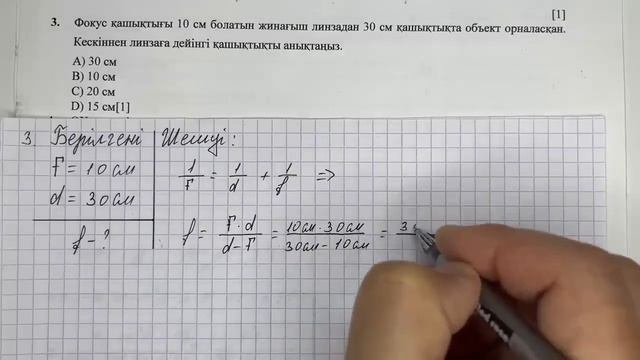 [1]
3. Фокус қашықтығы 10 см болатын жинағыш линзадан 30 см қашықтықта объект орналасқан.
Кескіннен линзаға дейінгі қашықтықты анықтаңыз.
A) 30 см
B) 10 см
C) 20 см
D) 15 см[1]
3. Берілгені Шешуі:
F = 10 см
d = 30 см
f - ?
1/F = 1/d + 1/f ⇒
f = F·d/d-F = 10 см · 30 см/30 см - 10 см = 3